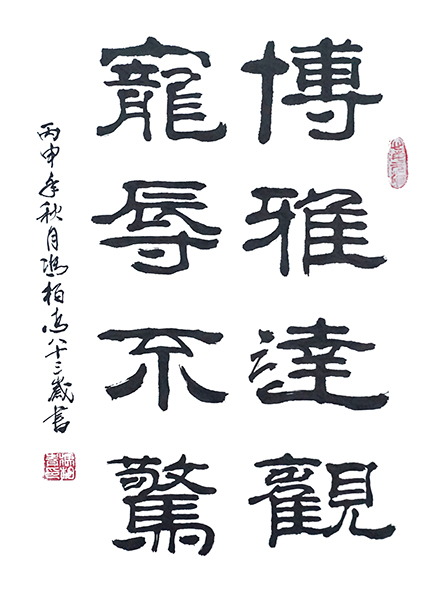 博雅達觀
寵辱不驚
丙申年秋月馮柏青八十三歲書